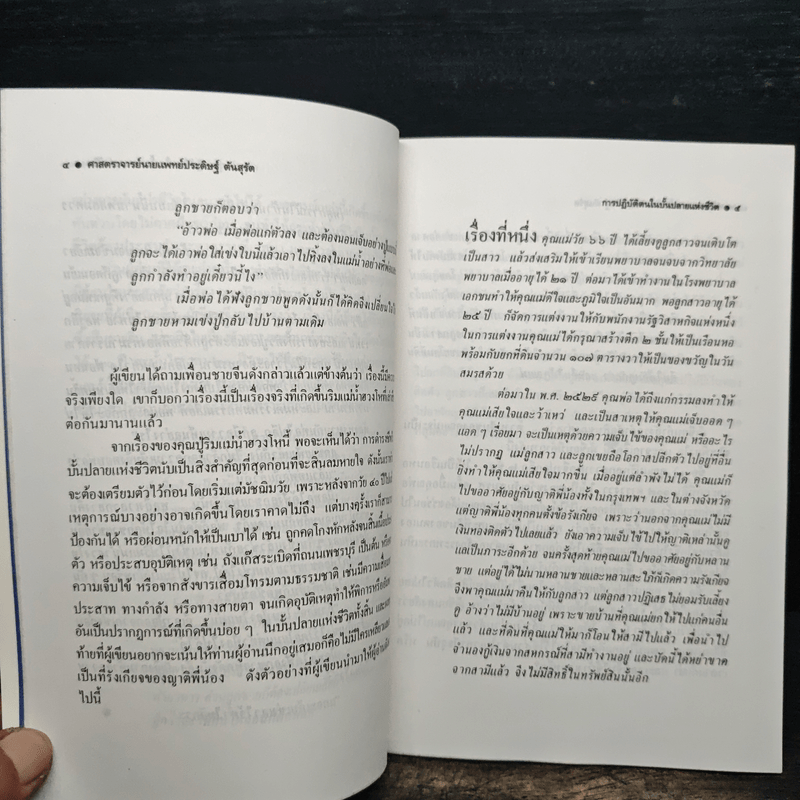 ๔ ● ศาสตราจารย์นายแพทย์ประดิษฐ์ ตันสุรัต
ลูกชายก็ตอบว่า
"อ้าวพ่อ เมื่อพ่อแก่ตัวลง และต้องนอนเจ็บอย่างปู่
ลูกจะได้เอาพ่อใส่เข่งใบนี้แล้วเอาไปทิ้งลงในแม่น้ำอย่างที่พ่อและ
ลูกกำลังทำอยู่เดี๋ยวนี้ไง"
เมื่อพ่อได้ฟังลูกชายพูดดังนั้นก็ได้คิดจึงเปลี่ยนใจ
ลูกชายหามเข่งปู่กลับไปบ้านตามเดิม
ผู้เขียนได้ถามเพื่อนชายจีนดังกล่าวแล้วแต่ข้างต้นว่า เรื่องนี้
จริงเพียงใด เขาก็บอกว่าเรื่องนี้เป็นเรื่องจริงที่เกิดขึ้นริมแม่น้ำฮวงโห
ต่อกันมานานแล้ว
จากเรื่องของคุณปู่ริมแม่น้ำฮวงโหนี้ พอจะเห็นได้ว่า
บั้นปลายแห่งชีวิตนับเป็นสิ่งสำคัญที่สุดก่อนที่จะสิ้นลมหายใจ ดังนั้น
จะต้องเตรียมตัวไว้ก่อนโดยเริ่มแต่มัชฌิมวัย เพราะหลังจากวัย ๔๐ ปี
เหตุการณ์บางอย่างอาจเกิดขึ้นโดยเราคาดไม่ถึง แต่บางครั้งเราก็
ป้องกันได้ หรือผ่อนหนักให้เป็นเบาได้ เช่น ถูกคดโกงหักหลังจนสิ้น
ตัว หรือประสบอุบัติเหตุ เช่น ถังแก๊สระเบิดที่ถนนเพชรบุรี เป็นต้น
ความเจ็บไข้ หรือจากสังขารเสื่อมโทรมตามธรรมชาติ เช่นมีความเสื่อม
ประสาท ทางกำลัง หรือทางสายตา จนเกิดอุบัติเหตุทำให้พิการ
อันเป็นปรากฏการณ์ที่เกิดขึ้นบ่อย ๆ ในบั้นปลายแห่งชีวิตทั้งสิ้น
ท้ายที่ผู้เขียนอยากจะเน้นให้ท่านผู้อ่านนึกอยู่เสมอก็คือไม่มีใครเหลียวแล
เป็นที่รังเกียจของญาติพี่น้อง ดังตัวอย่างที่ผู้เขียนนำมาให้ผู้อ่าน
ไปนี้
การปฏิบัติตนในบั้นปลายแห่งชีวิต ● ๕
เรื่องที่หนึ่ง คุณแม่วัย ๖๖ ปี ได้เลี้ยงดูลูกสาวจนเติบโต
เป็นสาว แล้วส่งเสริมให้เข้าเรียนพยาบาลจนจบจากวิทยาลัย
พยาบาลเมื่ออายุได้ ๒๑ ปี ต่อมาได้เข้าทำงานในโรงพยาบาล
เอกชนทำให้คุณแม่ดีใจและภูมิใจเป็นอันมาก พอลูกสาวอายุได้
๒๕ ปี ก็จัดการแต่งงานให้กับพนักงานรัฐวิสาหกิจแห่งหนึ่ง
ในการแต่งงานคุณแม่ได้กรุณาสร้างตึก ๒ ชั้นให้เป็นเรือนหอ
พร้อมกับยกที่ดินจำนวน ๑๐๗ ตารางวาให้เป็นของขวัญในวัน
สมรสด้วย
ต่อมาใน พ.ศ. ๒๕๒๙ คุณพ่อได้ถึงแก่กรรมลงทำให้
คุณแม่เสียใจและว้าเหว่ และเป็นสาเหตุให้คุณแม่เจ็บออด ๆ
แอด ๆ เรื่อยมา จะเป็นเหตุด้วยความเจ็บไข้ของคุณแม่ หรืออะไร
ไม่ปรากฏ แม่ลูกสาว และลูกเขยถือโอกาสปลีกตัวไปอยู่ที่อื่น
ยิ่งทำให้คุณแม่เสียใจมากขึ้น เมื่ออยู่แต่ลำพังไม่ได้ คุณแม่ก็
ไปขออาศัยอยู่กับญาติพี่น้องทั้งในกรุงเทพฯ และในต่างจังหวัด
แต่ญาติพี่น้องทุกคนตั้งข้อรังเกียจ เพราะว่านอกจากคุณแม่ไม่มี
เงินทองติดตัวไปเลยแล้ว ยังเอาความเจ็บไข้ไปให้ญาติเหล่านั้นดู
แลเป็นภาระอีกด้วย จนครั้งสุดท้ายคุณแม่ไปขออาศัยอยู่กับหลาน
ชาย แต่อยู่ได้ไม่นานหลานชายและหลานสะใภ้ก็เกิดความรังเกียจ
จึงพาคุณแม่มาคืนให้กับลูกสาว แต่ลูกสาวปฏิเสธไม่ยอมรับเลี้ยง
ดู อ้างว่าไม่มีบ้านอยู่ เพราะขายบ้านที่คุณแม่ยกให้ไปแก่คนอื่น
แล้ว และที่ดินที่คุณแม่ให้มาก็โอนให้สามีไปแล้ว เพื่อนำไป
จำนองกู้เงินจากสหกรณ์ที่สามีทำงานอยู่ และบัดนี้ได้หย่าขาด
จากสามีแล้ว จึงไม่มีสิทธิ์ในทรัพย์สินนั้นอีก